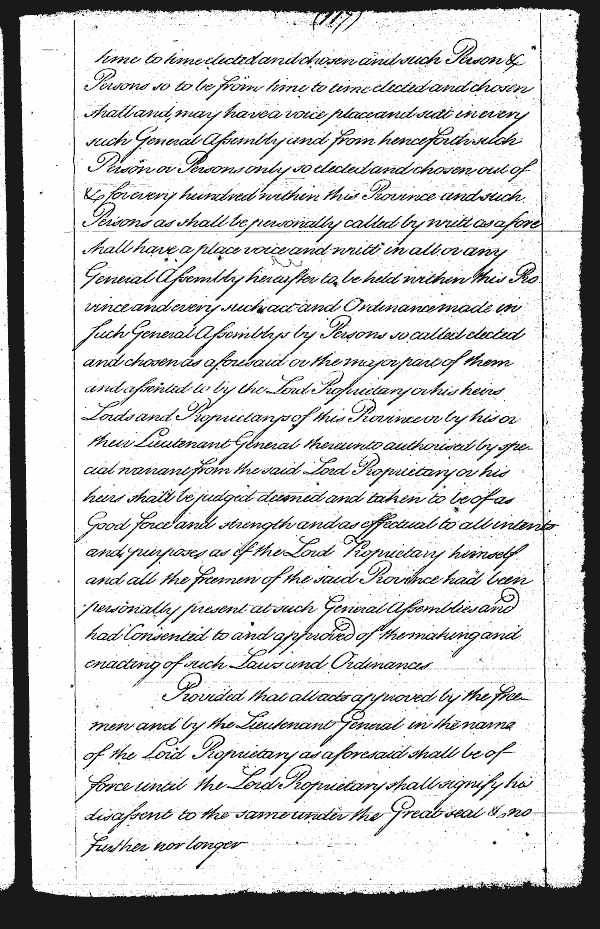 (117)
time to time elected and chosen and such Person &
Persons so to be from time to time elected and chosen
shall and may have a voice place and seat in every
such General Assembly and from henceforth such
Person or Persons only so elected and chosen out of
& for every hundred within this Province and such
Persons as shall be personally called by writt as afore
shall have a place voice and writt in all or any
General Assembly hereafter to be held within this Pro
vince and every such act and Ordinance made in
such General Assemblys by Persons so called elected
and chosen as aforesaid or the major part of them
and assented to by the Lord Proprietary or his heirs
Lords and Proprietarys of this Province or by his or
their Lieutenant General thereunto authorised by spe-
cial warrant from the said Lord Proprietary or his
heirs shall be judged deemed and taken to be of as
Good force and strength and as effectual to all intents
and purposes as if the Lord Proprietary himself
and all the freemen of the said Province had been
personally present at such General Assemblies and
had Consented to and approved of the making and
enacting of such Laws and Ordinances
Provided that all acts approved by the free-
men and by the Lieutenant General in the name
of the Lord Proprietary as aforesaid shall be of
force until the Lord Proprietary shall signify his
disassent to the same under the Great seal & no
further nor longer